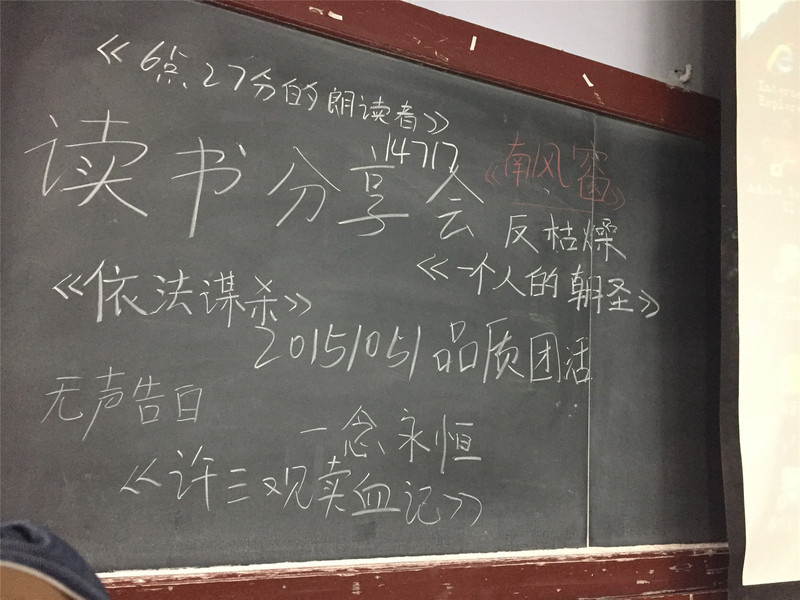 《6点27分的朗读者》
读书分享会
14717
《南风窗》
反枯燥
《一个人的朝圣》
《依法谋杀》
20151051品质团活
无声告白
一念永恒
《许三观卖血记》